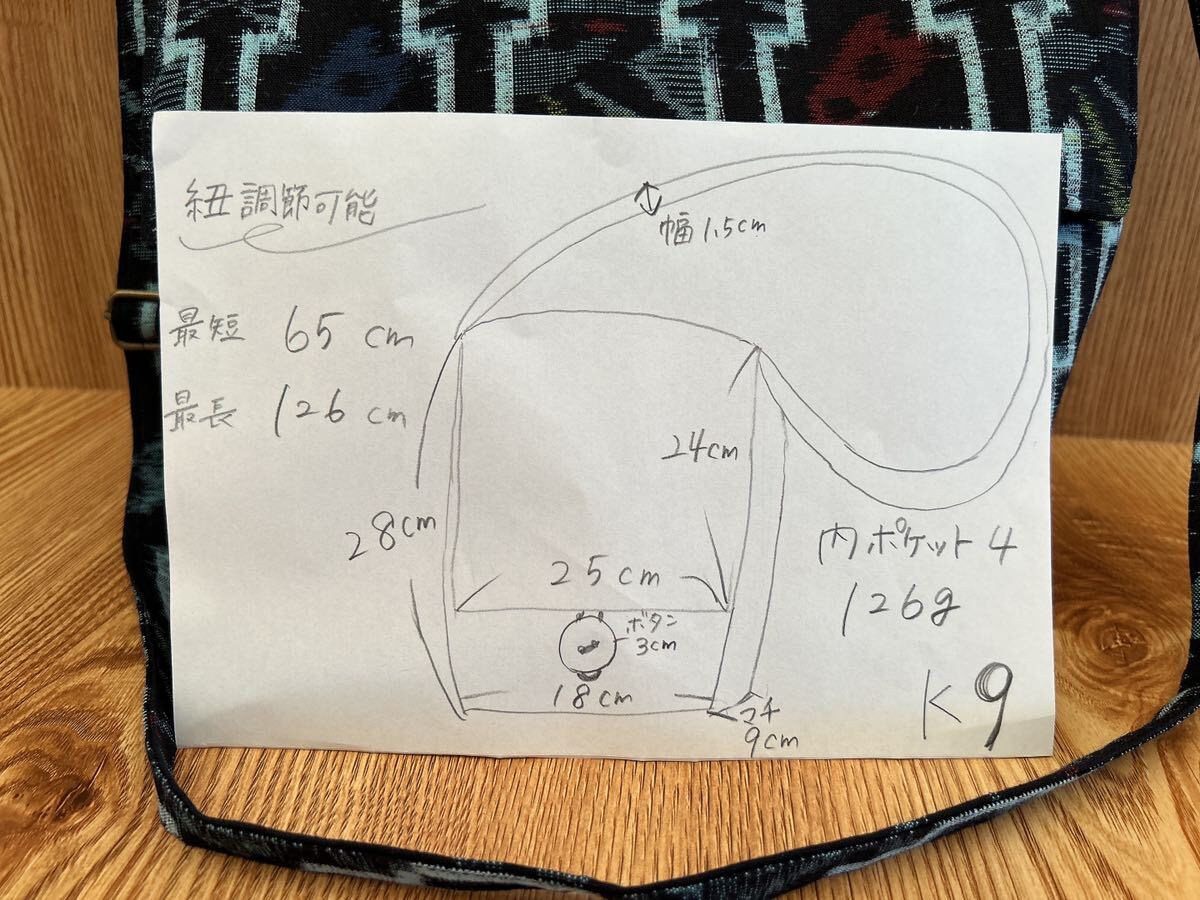 紐調節可能
幅1.5cm
最短 65cm
最長 126cm
24cm
28cm
25cm
内ポケット4
126g
ボタン
3cm
18cm
マチ
9cm
K9